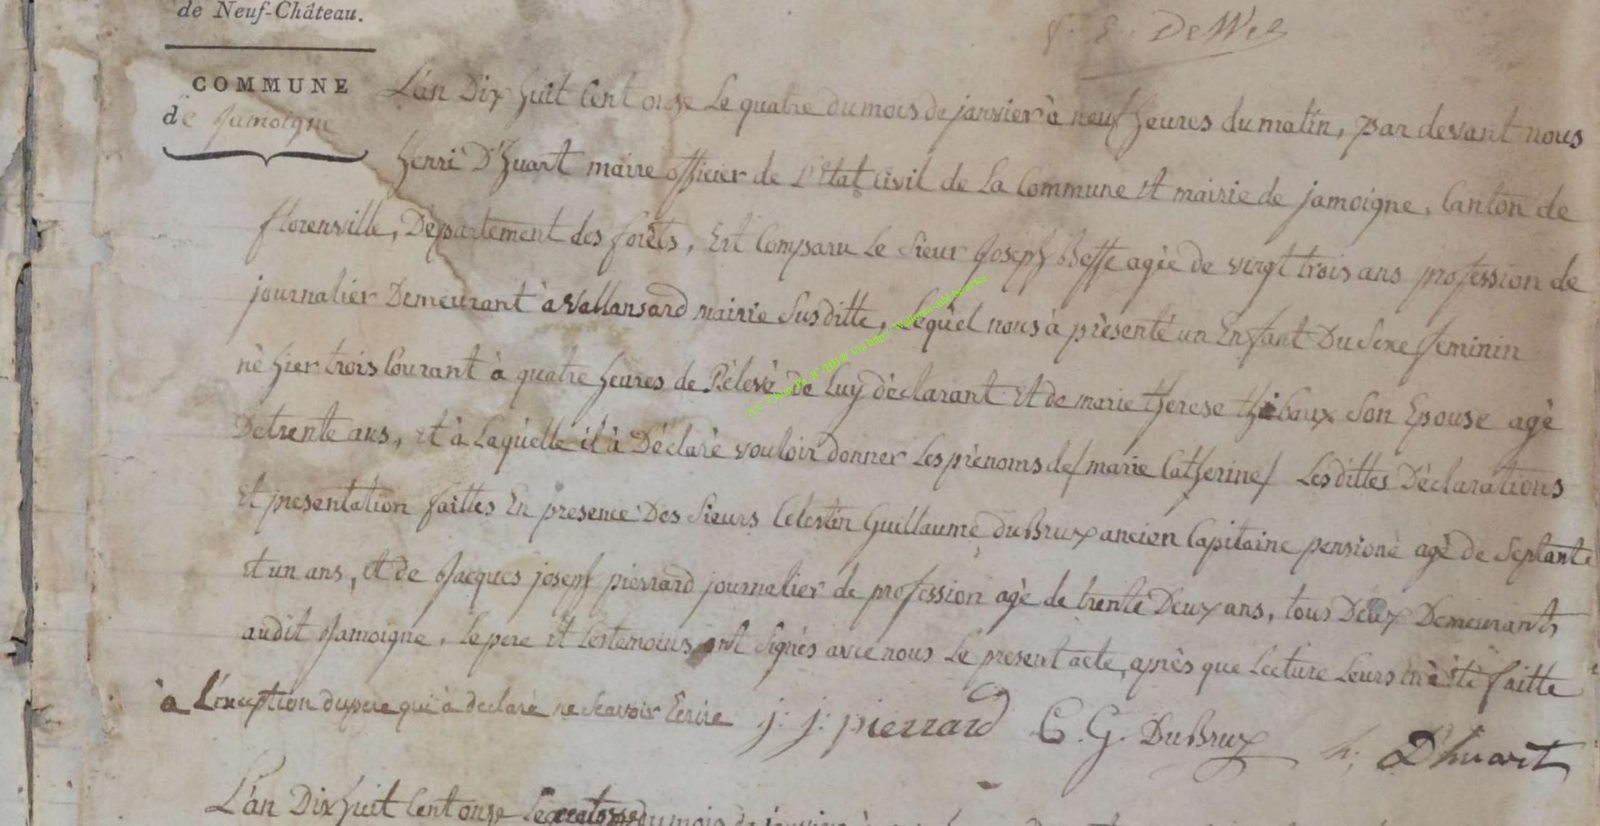 de Neuf-Château.
De Wes
COMMUNE
de Jamoigne
L'an Dix huit Cent onze Le quatre du mois de janvier à neuf heures du matin, par devant nous
henri D'huart maire officier de L'Etat Civil de La Commune et mairie de jamoigne, Canton de
florenville, Département des forêts, Est Comparu Le Sieur Joseph agée de vingt trois ans profession de
journalier Demeurant à Vallansard mairie Susditte, Lequel nous à présenté un Enfant Du Sexe feminin
né hier trois Courant à quatre heures de Rélevé de Luy déclarant Et de marie therese thibaux Son Epouse agé
De trente ans, et à Laquelle il à Déclaré vouloir donner Les prénoms de / marie Catherine / Les dittes Déclarations
Et presentation faittes En presence Des Sieurs Celestin Guillaume DuBrux ancien Capitaine pensioné agé de Septante
et un ans, et de Jacques joseph pierrard journalier de profession agé de trente Deux ans, tous Deux Demeurants
audit Jamoigne, Le pere et Les temoins ont Signés avec nous Le present acte, après que Lecture Leurs en à été faitte
à L'exception du pere qui à declaré ne Scavoir Ecrire j: j: pierrard C. G. DuBrux h: D'huart
L'an Dix huit Cent onze Le du mois de janvier